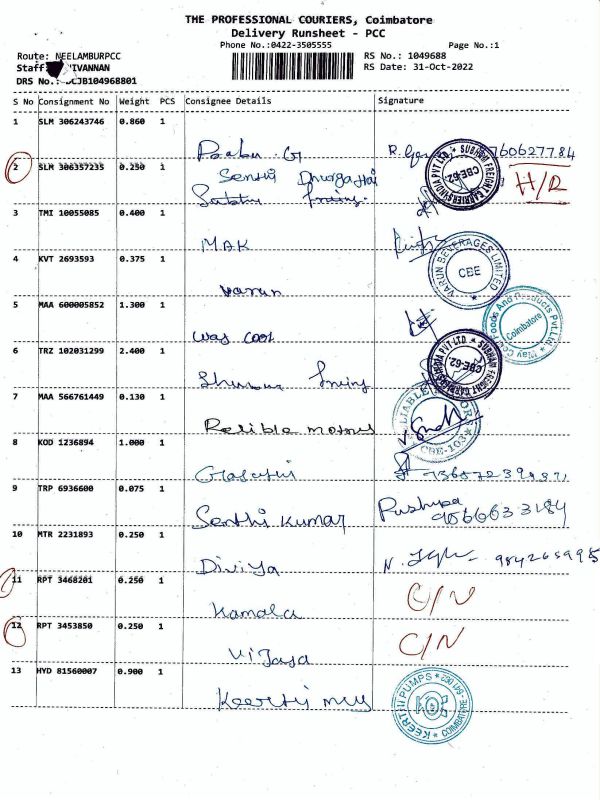 THE PROFESSIONAL COURIERS, Coimbatore
Delivery Runsheet - PCC
Phone No.:0422-3505555 Page No.:1
Route: NEELAMBURPCC RS No.: 1049688
RS Date: 31-Oct-2022
DRS No.:
S No Consignment No Weight PCS Consignee Details Signature
1 SLM 306243746 0.860 1
Babu G
2 SLM 306357235 0.250 1
Senthi H/R
SUBHAM FREIGHT CARRIERS INDIA PVT LTD. CBE-62.
3 TMI 10055085 0.400 1
MAK
4 KVT 2693593 0.375 1
Varun
VARUN BEVERAGES LIMITED CBE
5 MAA 600005852 1.300 1
was cool
Foods And Products Pvt.Ltd. Coimbatore
6 TRZ 102031299 2.400 1
SUBHAM FREIGHT CARRIERS INDIA PVT LTD. CBE-62.
7 MAA 566761449 0.130 1
Relible motors
CBE-103
8 KOD 1236894 1.000 1
9 TRP 6936600 0.075 1
Senthi Kumar Pushpa
10 MTR 2231893 0.250 1
Diviya
11 RPT 3468201 0.250 1
Kamala C/N
12 RPT 3453850 0.250 1
Vijaya C/N
13 HYD 81560007 0.900 1
Keerthi
KEERTHI PUMPS COIMBATORE